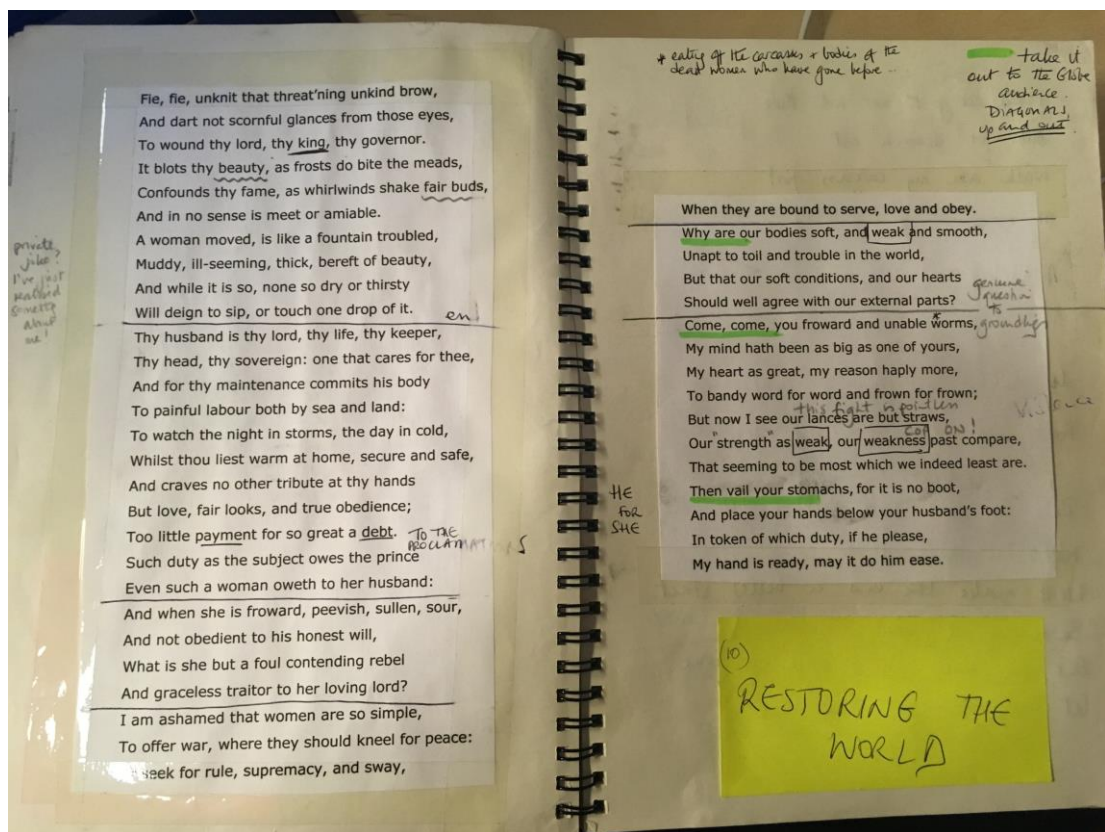 Fie, fie, unknit that threat'ning unkind brow,
And dart not scornful glances from those eyes,
To wound thy lord, thy king, thy governor.
It blots thy beauty, as frosts do bite the meads,
Confounds thy fame, as whirlwinds shake fair buds,
And in no sense is meet or amiable.
A woman moved, is like a fountain troubled,
Muddy, ill-seeming, thick, bereft of beauty,
And while it is so, none so dry or thirsty
Will deign to sip, or touch one drop of it.
Thy husband is thy lord, thy life, thy keeper,
Thy head, thy sovereign: one that cares for thee,
And for thy maintenance commits his body
To painful labour both by sea and land:
To watch the night in storms, the day in cold,
Whilst thou liest warm at home, secure and safe,
And craves no other tribute at thy hands
But love, fair looks, and true obedience;
Too little payment for so great a debt.
TO THE
PROCLAMATIONS
Such duty as the subject owes the prince
Even such a woman oweth to her husband:
And when she is froward, peevish, sullen, sour,
And not obedient to his honest will,
What is she but a foul contending rebel
And graceless traitor to her loving lord?
I am ashamed that women are so simple,
To offer war, where they should kneel for peace:
seek for rule, supremacy, and sway,
private
joke?
I've just
realised
about
me!
* eating of the carcasses + bodies of the
dead women who have gone before ..
take it
out to the Globe
audience.
DIAGONALS,
up and out.
When they are bound to serve, love and obey.
Why are our bodies soft, and weak and smooth,
Unapt to toil and trouble in the world,
But that our soft conditions, and our hearts
Should well agree with our external parts?
genuine
question
to
groundlings
Come, come, you froward and unable *worms,
My mind hath been as big as one of yours,
My heart as great, my reason haply more,
To bandy word for word and frown for frown;
this fight is pointless
But now I see our lances are but straws,
COME ON!
Our "strength" as weak, our weakness past compare,
That seeming to be most which we indeed least are.
Then vail your stomachs, for it is no boot,
And place your hands below your husband's foot:
In token of which duty, if he please,
My hand is ready, may it do him ease.
HE
FOR
SHE
(10)
RESTORING THE
WORLD